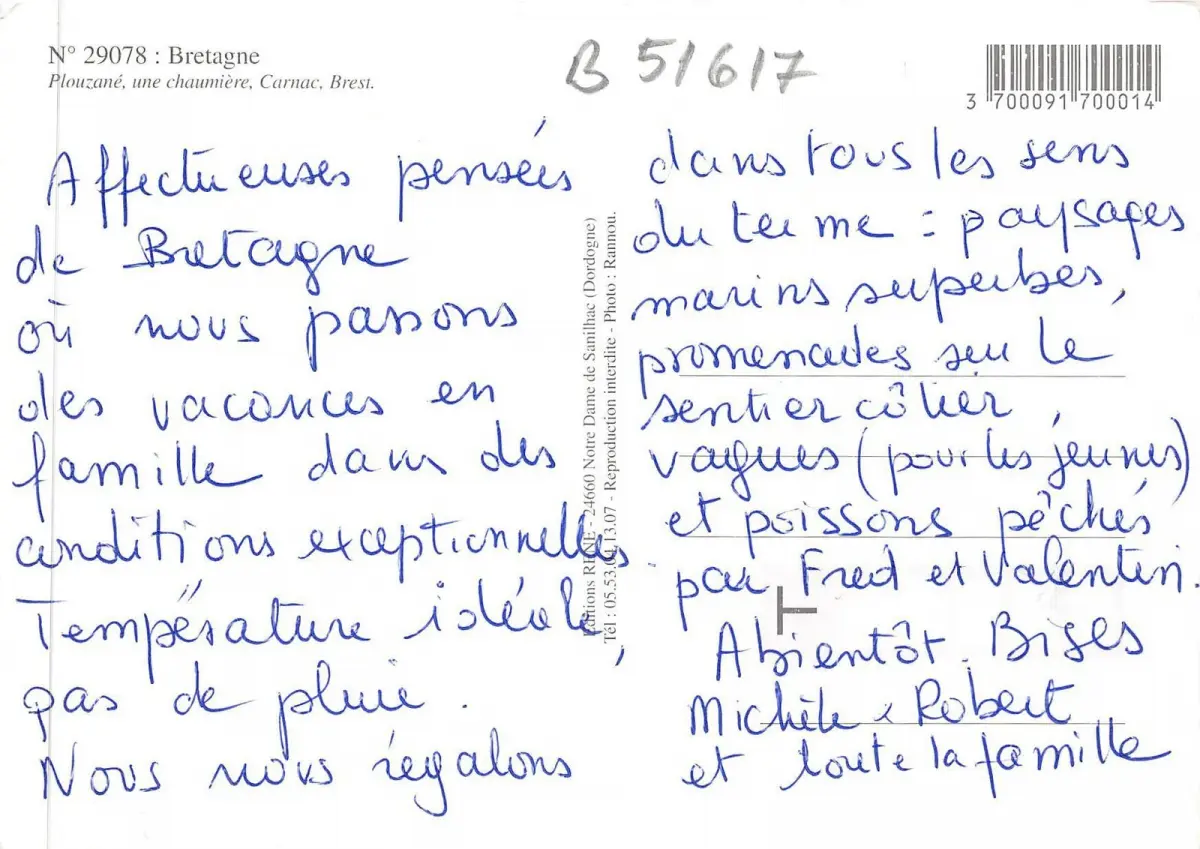 N° 29078 : Bretagne
Plouzané, une chaumière, Carnac, Brest.
B 51617
3 700091 700014
Affectueuses pensées
de Bretagne
où nous passons
des vacances en
famille dans des
conditions exceptionnelles.
Température idéale,
pas de pluie.
Nous nous régalons
Editions RENE - 24660 Notre Dame de Sanilhac (Dordogne)
Tél : 05.53. .13.07 - Reproduction interdite - Photo : Rannou.
dans tous les sens
du terme : paysages
marins superbes,
promenades sur le
sentier côtier,
vagues (pour les jeunes)
et poissons pêchés
par Fred et Valentin.
A bientôt. Bises
Michèle x Robert
et toute la famille